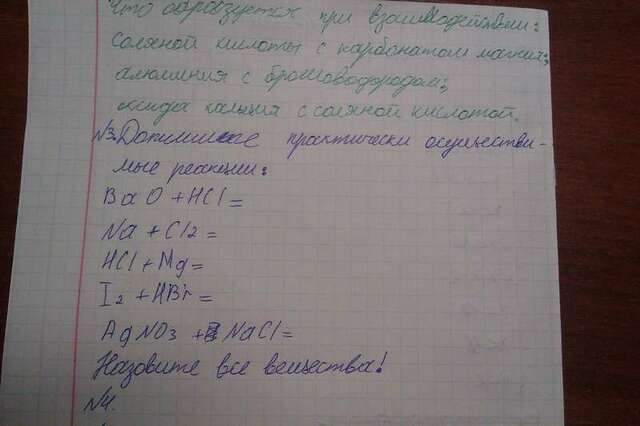 Что образуется при взаимодействии:
соляной кислоты с карбонатом магния;
алюминия с бромоводородом;
оксида кальция с соляной кислотой.
№3. Допишите практически осуществи-
мые реакции:
BaO + HCl =
Na + Cl2 =
HCl + Mg =
I2 + HBr =
AgNO3 + NaCl =
Назовите все вещества!
№4.